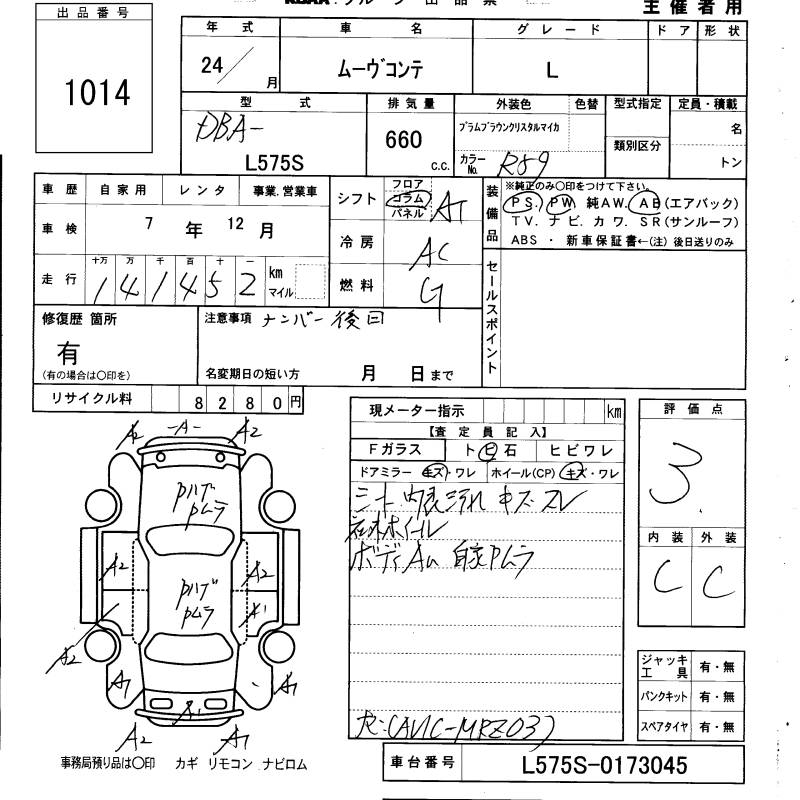 主催者用
出品番号
1014
年式 車名 グレード ドア 形状
24/月 ムーヴコンテ L
型式 排気量 外装色 色替 型式指定 定員・積載
DBA-
L575S
660 c.c.
プラムブラウンクリスタルマイカ
カラーNo. R59
類別区分
名
トン
車歴 自家用 レンタ 事業.営業車
車検 7年 12月
走行 十万 万 千 百 十 一
141452 km マイル
シフト フロア コラム パネル AT
冷房 AC
燃料 G
装備品
※純正のみ○印をつけて下さい。
PS. PW 純AW. AB(エアバック)
TV. ナビ. カワ. SR(サンルーフ)
ABS ・ 新車保証書←(注) 後日送りのみ
セールスポイント
修復歴 箇所
有
(有の場合は○印を)
注意事項 ナンバー後日
名変期日の短い方 月 日まで
リサイクル料 8280円
現メーター指示 km
【査定員記入】
Fガラス ト ビ 石 ヒビワレ
ドアミラー キズ・ワレ ホイール(CP) キズ・ワレ
シート 内装汚れ キズ スレ
ホイール
ボディ
評価点
3.
内装 外装
C C
A2 -A- A2
Pハゲ
Pムラ
A2 A2
Pハゲ
Pムラ
A1
A2
A1 A1 A1
A2 A1
ジャッキ工具 有・無
パンクキット 有・無
スペアタイヤ 有・無
事務局預り品は○印 カギ リモコン ナビロム
車台番号 L575S-0173045